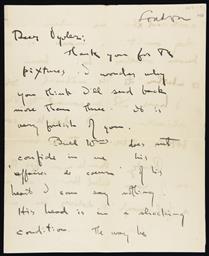 London
Dear Ogden:
Thank you for the
pictures. I wonder why
you think I'll send back
more than three. It is
very foolish of you.
Bill Wm does not
confide in me his
"affaires de coeur" of his
heart I can say nothing.
His head is in a shocking
condition. The way he